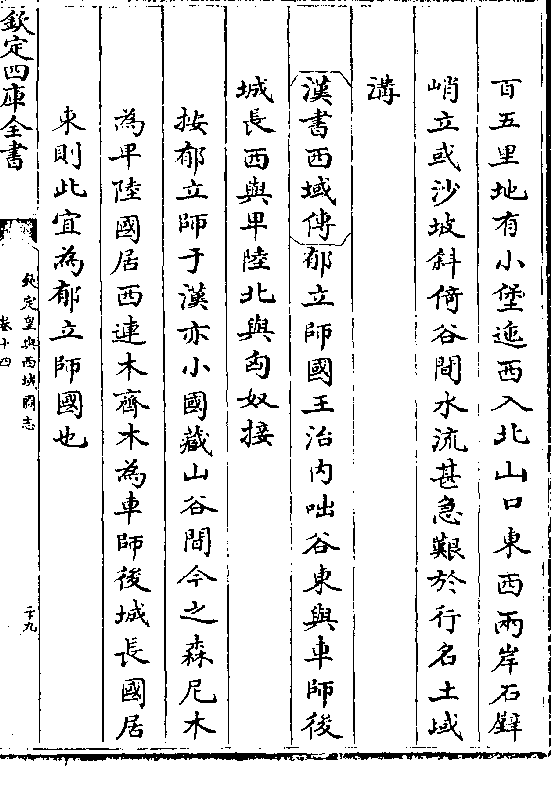 百五里地有小堡迤西入北山口東西兩岸石壁
峭立或沙坡斜倚谷間水流甚急艱於行名土域
溝
漢書西域傳郁立師國王治内咄谷東與車師後
城長西與卑陸北與匈奴接
按郁立師于漢亦小國藏山谷間今之森尼木
為卑陸國居西連木齊木為車師後城長國居
東則此宜為郁立師國也
欽定四庫全書
欽定皇輿西域圖志
卷十四
二十九